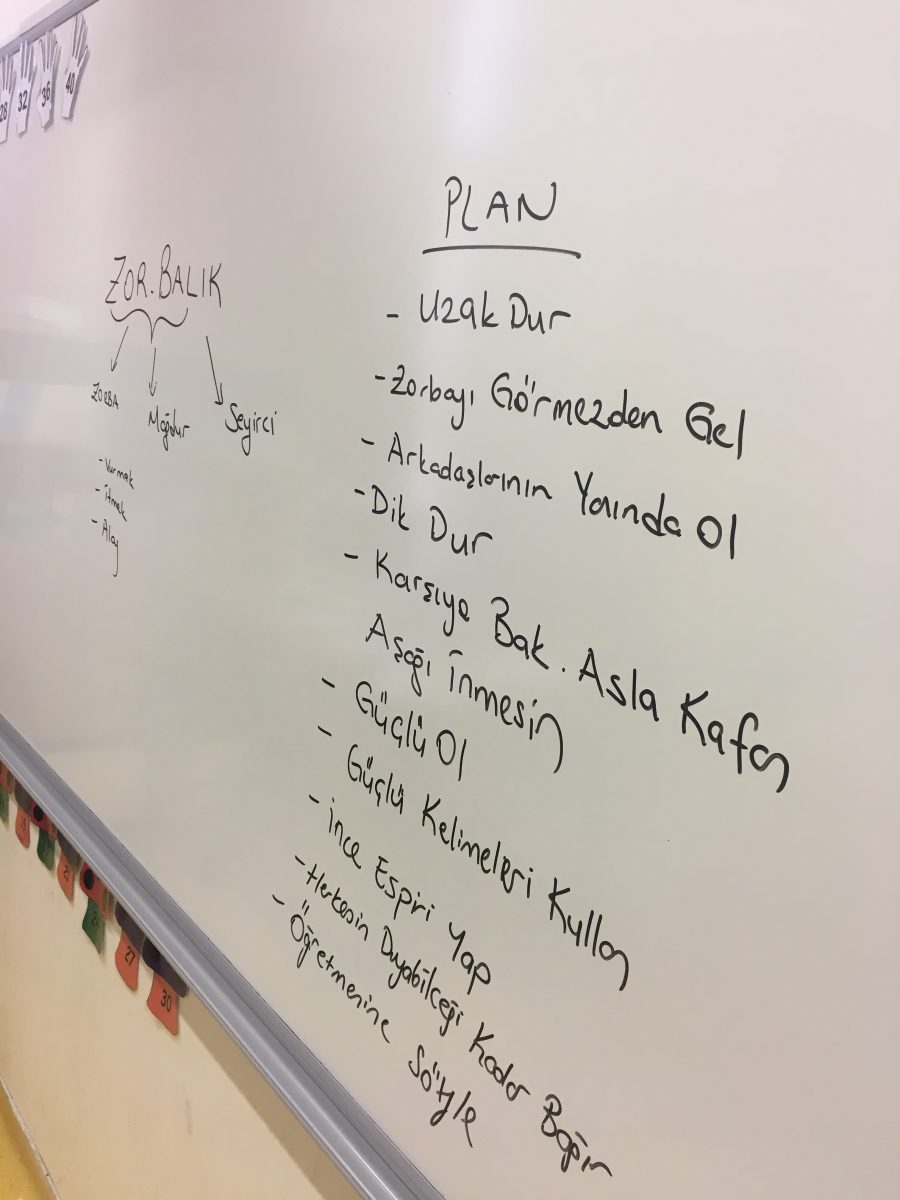 28 32 36 40
ZOR.BALIK
ZORBA Mağdur Seyirci
- Vurmak
- İtmek
- Alay
PLAN
- Uzak Dur
- Zorbayı Görmezden Gel
- Arkadaşlarının Yanında Ol
- Dik Dur
- Karşıya Bak. Asla Kafan
Aşağı İnmesin
- Güçlü Ol
- Güçlü Kelimeleri Kullan
- İnce Espiri Yap
- Herkesin Duyabilceği Kadar Bağır
- Öğretmenine Söyle
21
24
27
30